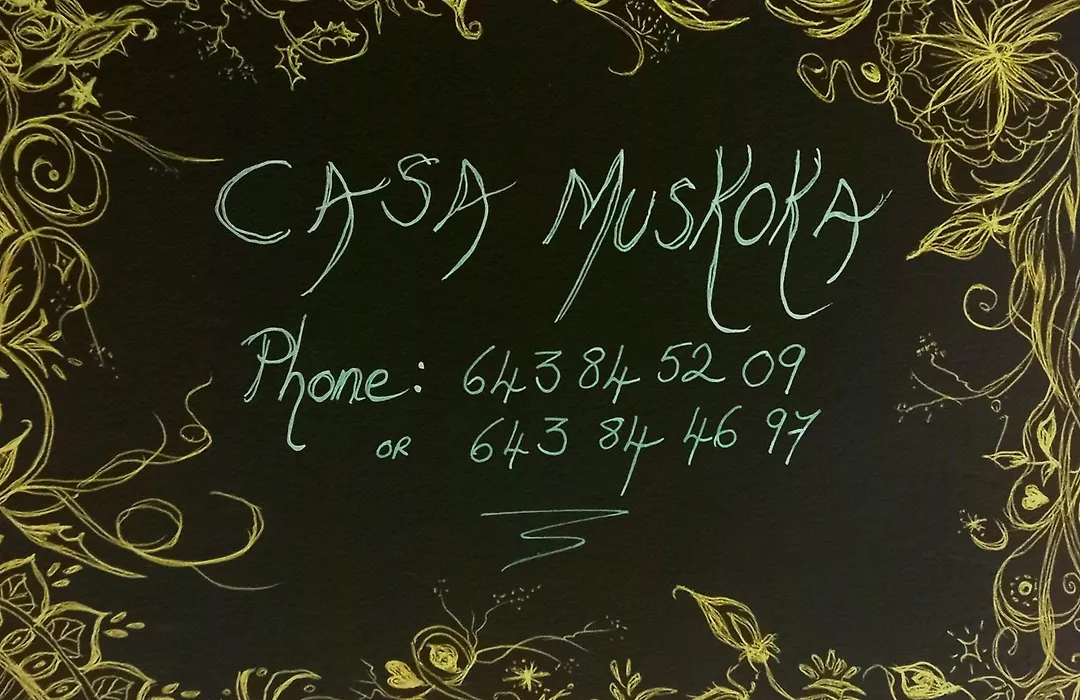 CASA MUSKOKA
Phone: 643 84 52 09
OR 643 84 46 97